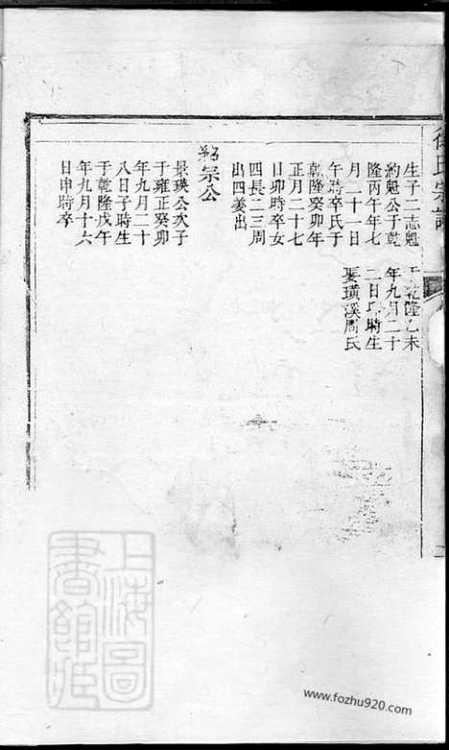 氏宗譜
生子二志魁
約魁公于乾
隆丙午年七
月二十一日
午時卒氏于
乾隆癸卯年
正月二十七
日卯時卒女
四長二三周
出四姜出
乾隆乙未
年九月二十
二日時生
娶璜溪周氏
宗公
景瑛公次子
于雍正癸卯
年九月二十
八日子時生
于乾隆戊午
年九月十六
日申時卒
上海圖
書館藏
www.fozhu920.com